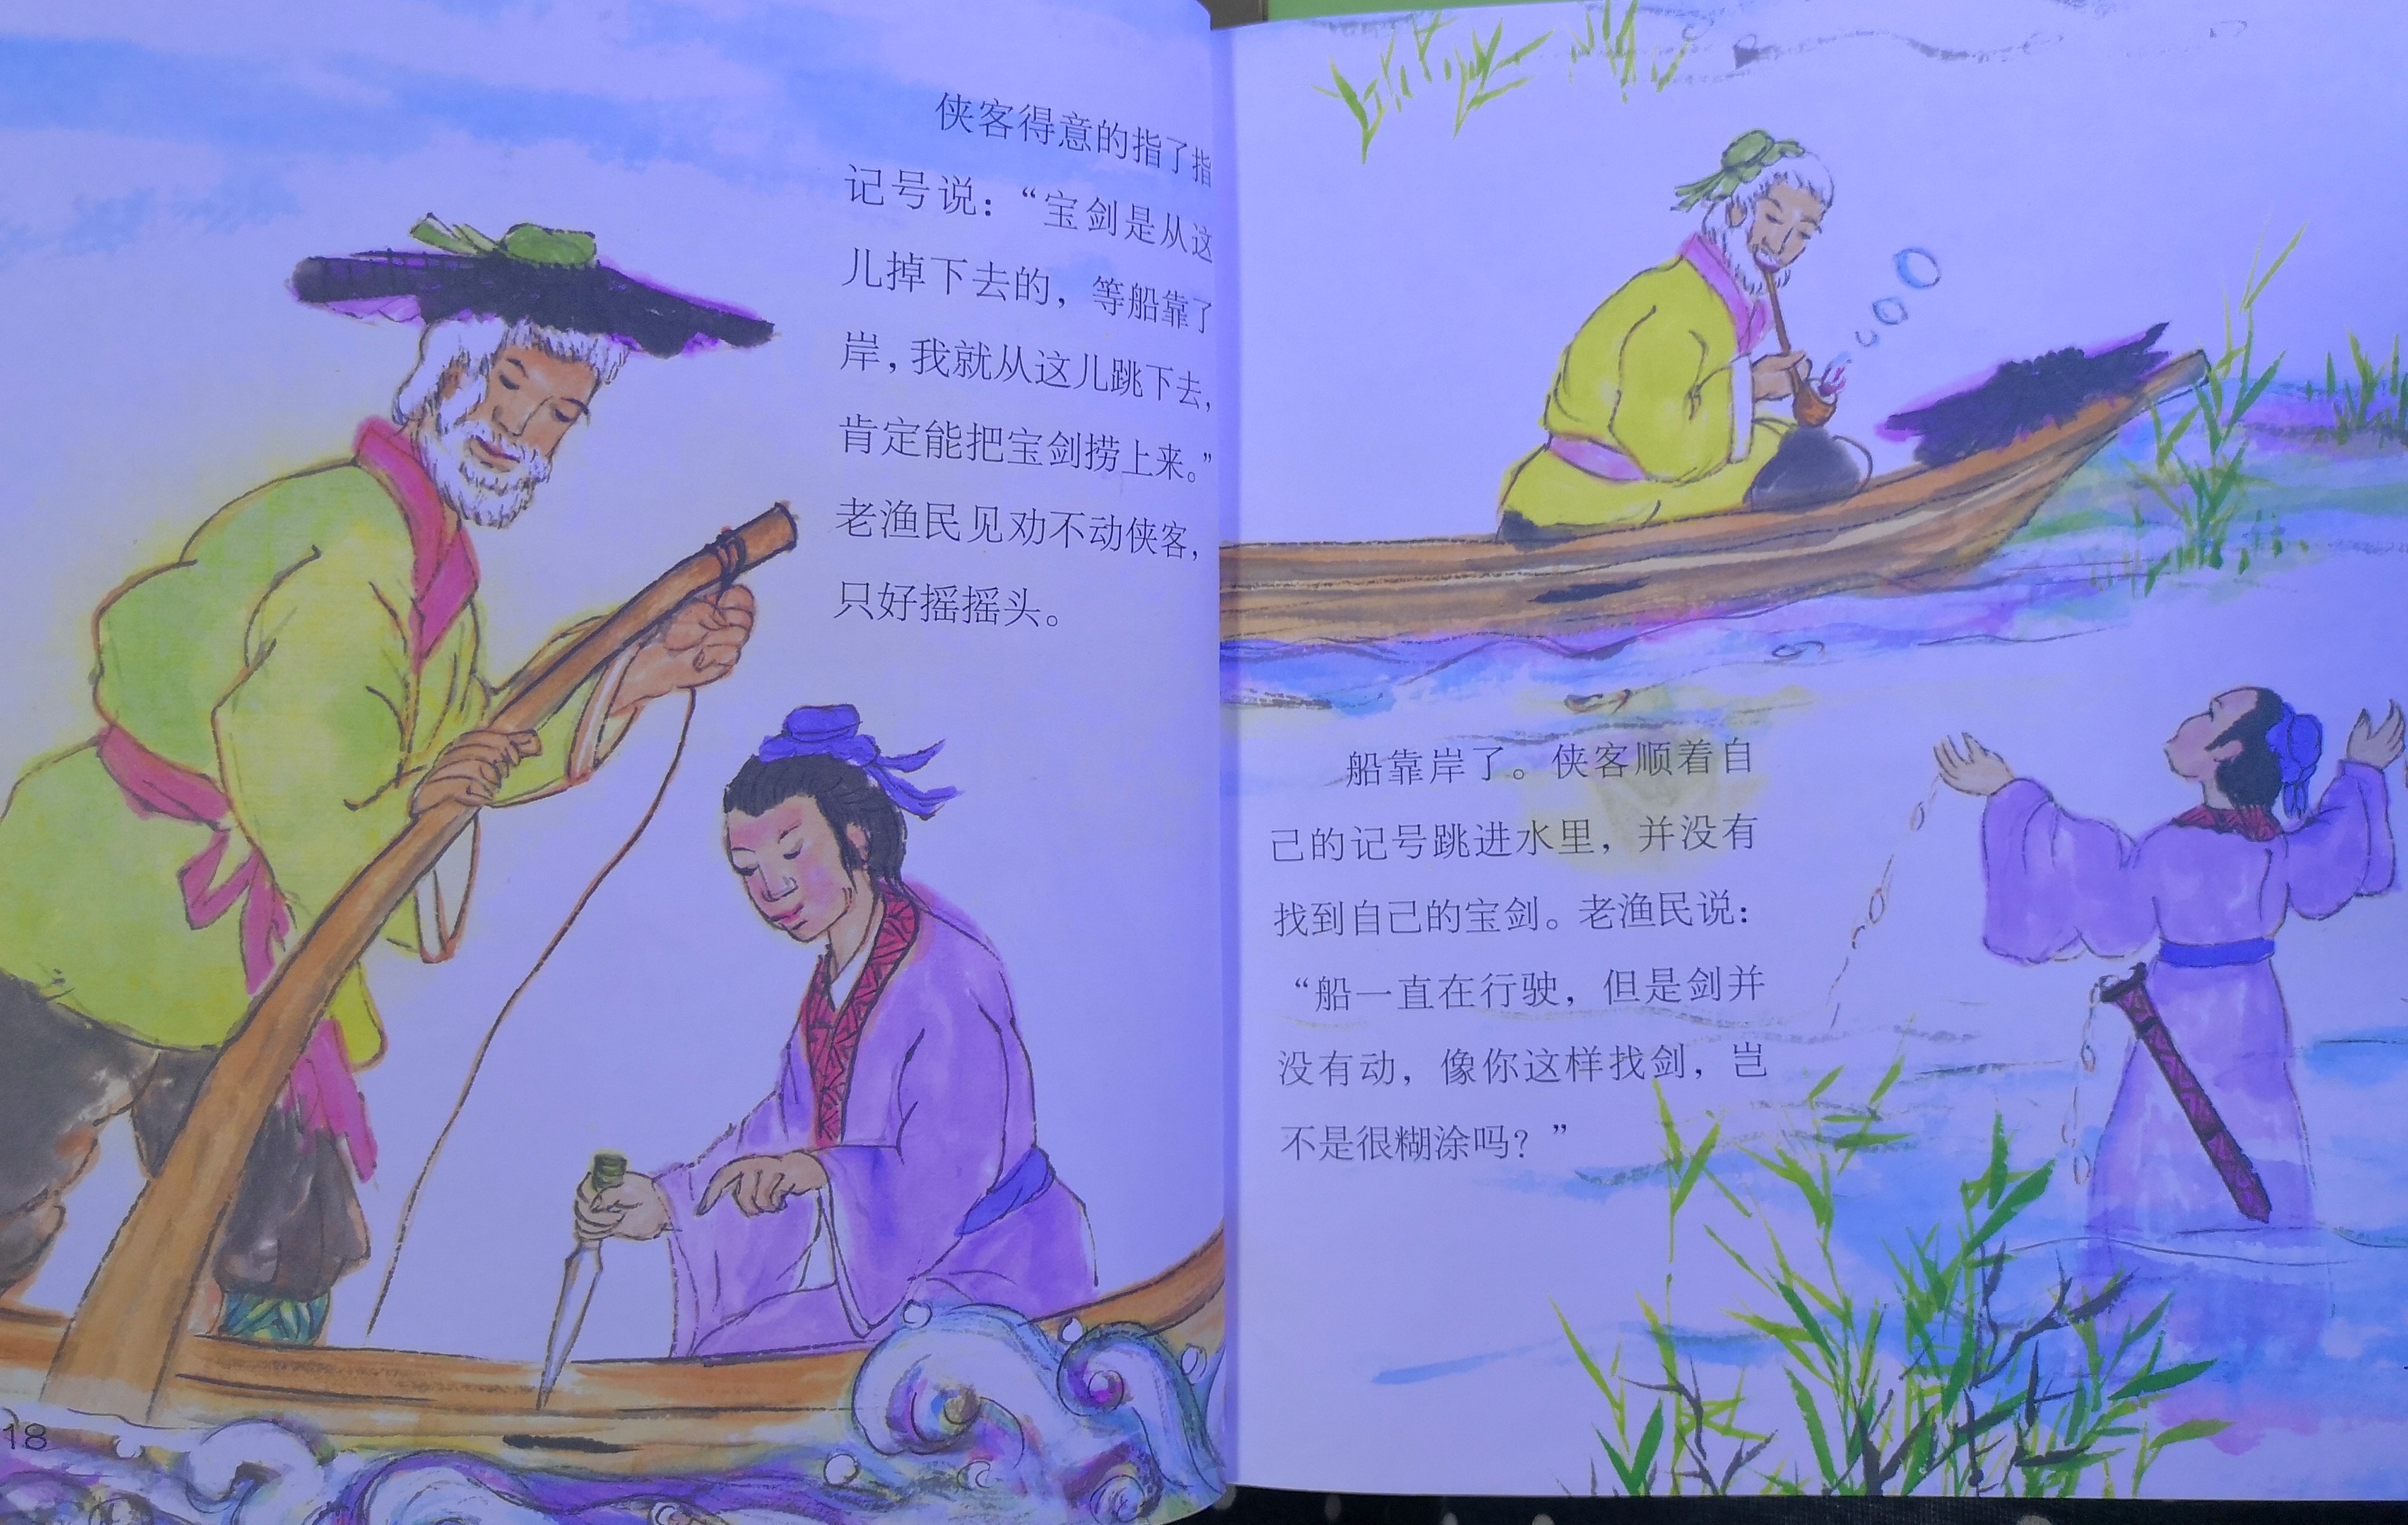 侠客得意的指了指
记号说：“宝剑是从这
儿掉下去的，等船靠了
岸，我就从这儿跳下去，
肯定能把宝剑捞上来。”
老渔民见劝不动侠客，
只好摇摇头。
18
船靠岸了。侠客顺着自
己的记号跳进水里，并没有
找到自己的宝剑。老渔民说：
“船一直在行驶，但是剑并
没有动，像你这样找剑，岂
不是很糊涂吗？”